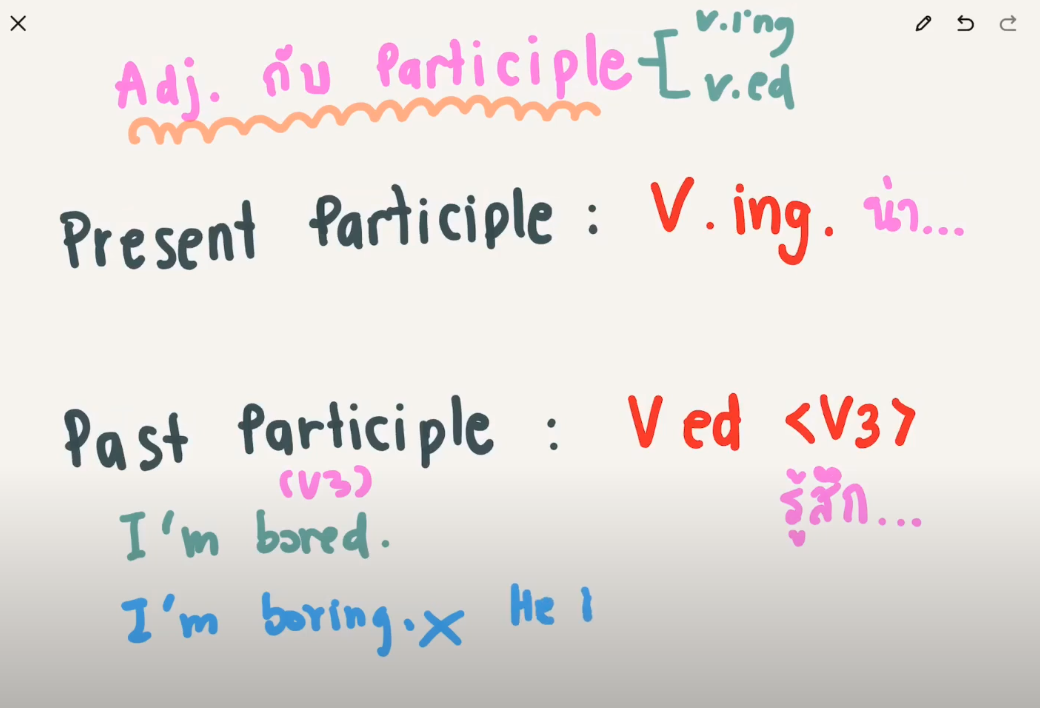 Adj. กับ Participle v.ing
v.ed
Present Participle : V.ing. น่า...
Past Participle : Ved <V3>
(V3) รู้สึก...
I'm bored.
I'm boring. x He